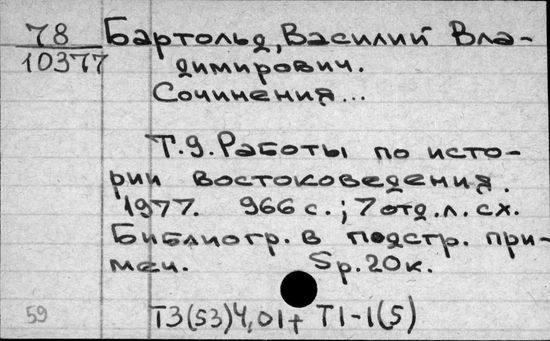 78 Бартольд, Василий Вла-
10377 димирович.
Сочинения...
Т.9. Работы по исто-
рии востоковедения.
1977. 966 с.; 7 отд.л.сх.
Библиогр. в подстр. при-
меч. 5р.20к.
59 Т3(53)4,01+ Т1-1(5)